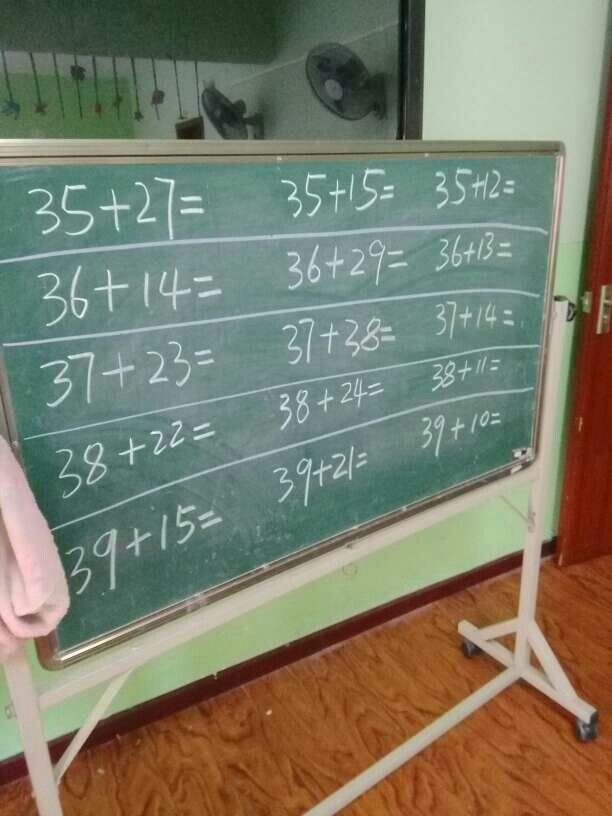 35+27= 35+15= 35+12=
36+14= 36+29= 36+13=
37+23= 37+38= 37+14=
38+22= 38+24= 38+11=
39+15= 39+21= 39+10=